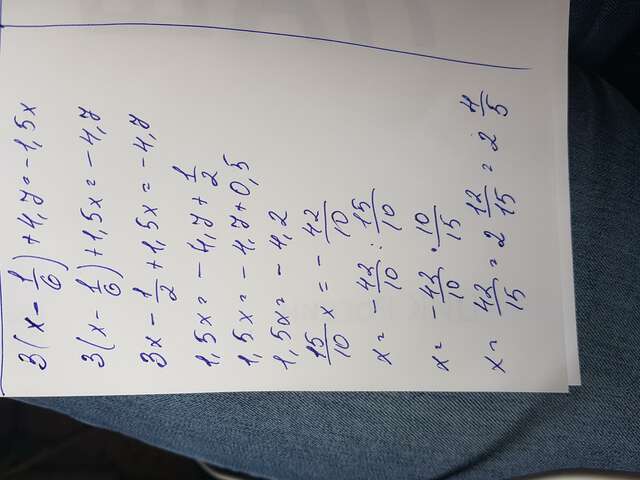 3(x - 1/6) + 4,7 = -1,5x
3(x - 1/6) + 1,5x = -4,7
3x - 1/2 + 1,5x = -4,7
1,5x = -4,7 + 1/2
1,5x = -4,7 + 0,5
1,5x = -4,2
15/10 x = - 42/10
x = - 42/10 : 15/10
x = - 42/10 · 10/15
x = 42/15 = 2 12/15 = 2 4/5